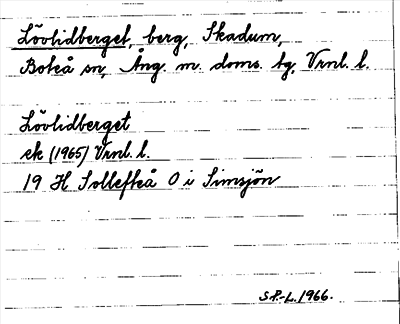 Lövlidberget, berg, Skadum,
Boteå sn, Ång. m. doms. tg, Vrnl. l.
Lövlidberget
ek (1965) Vrnl. l.
19 H Sollefteå O i Simsjön
S.P.-L. 1966.